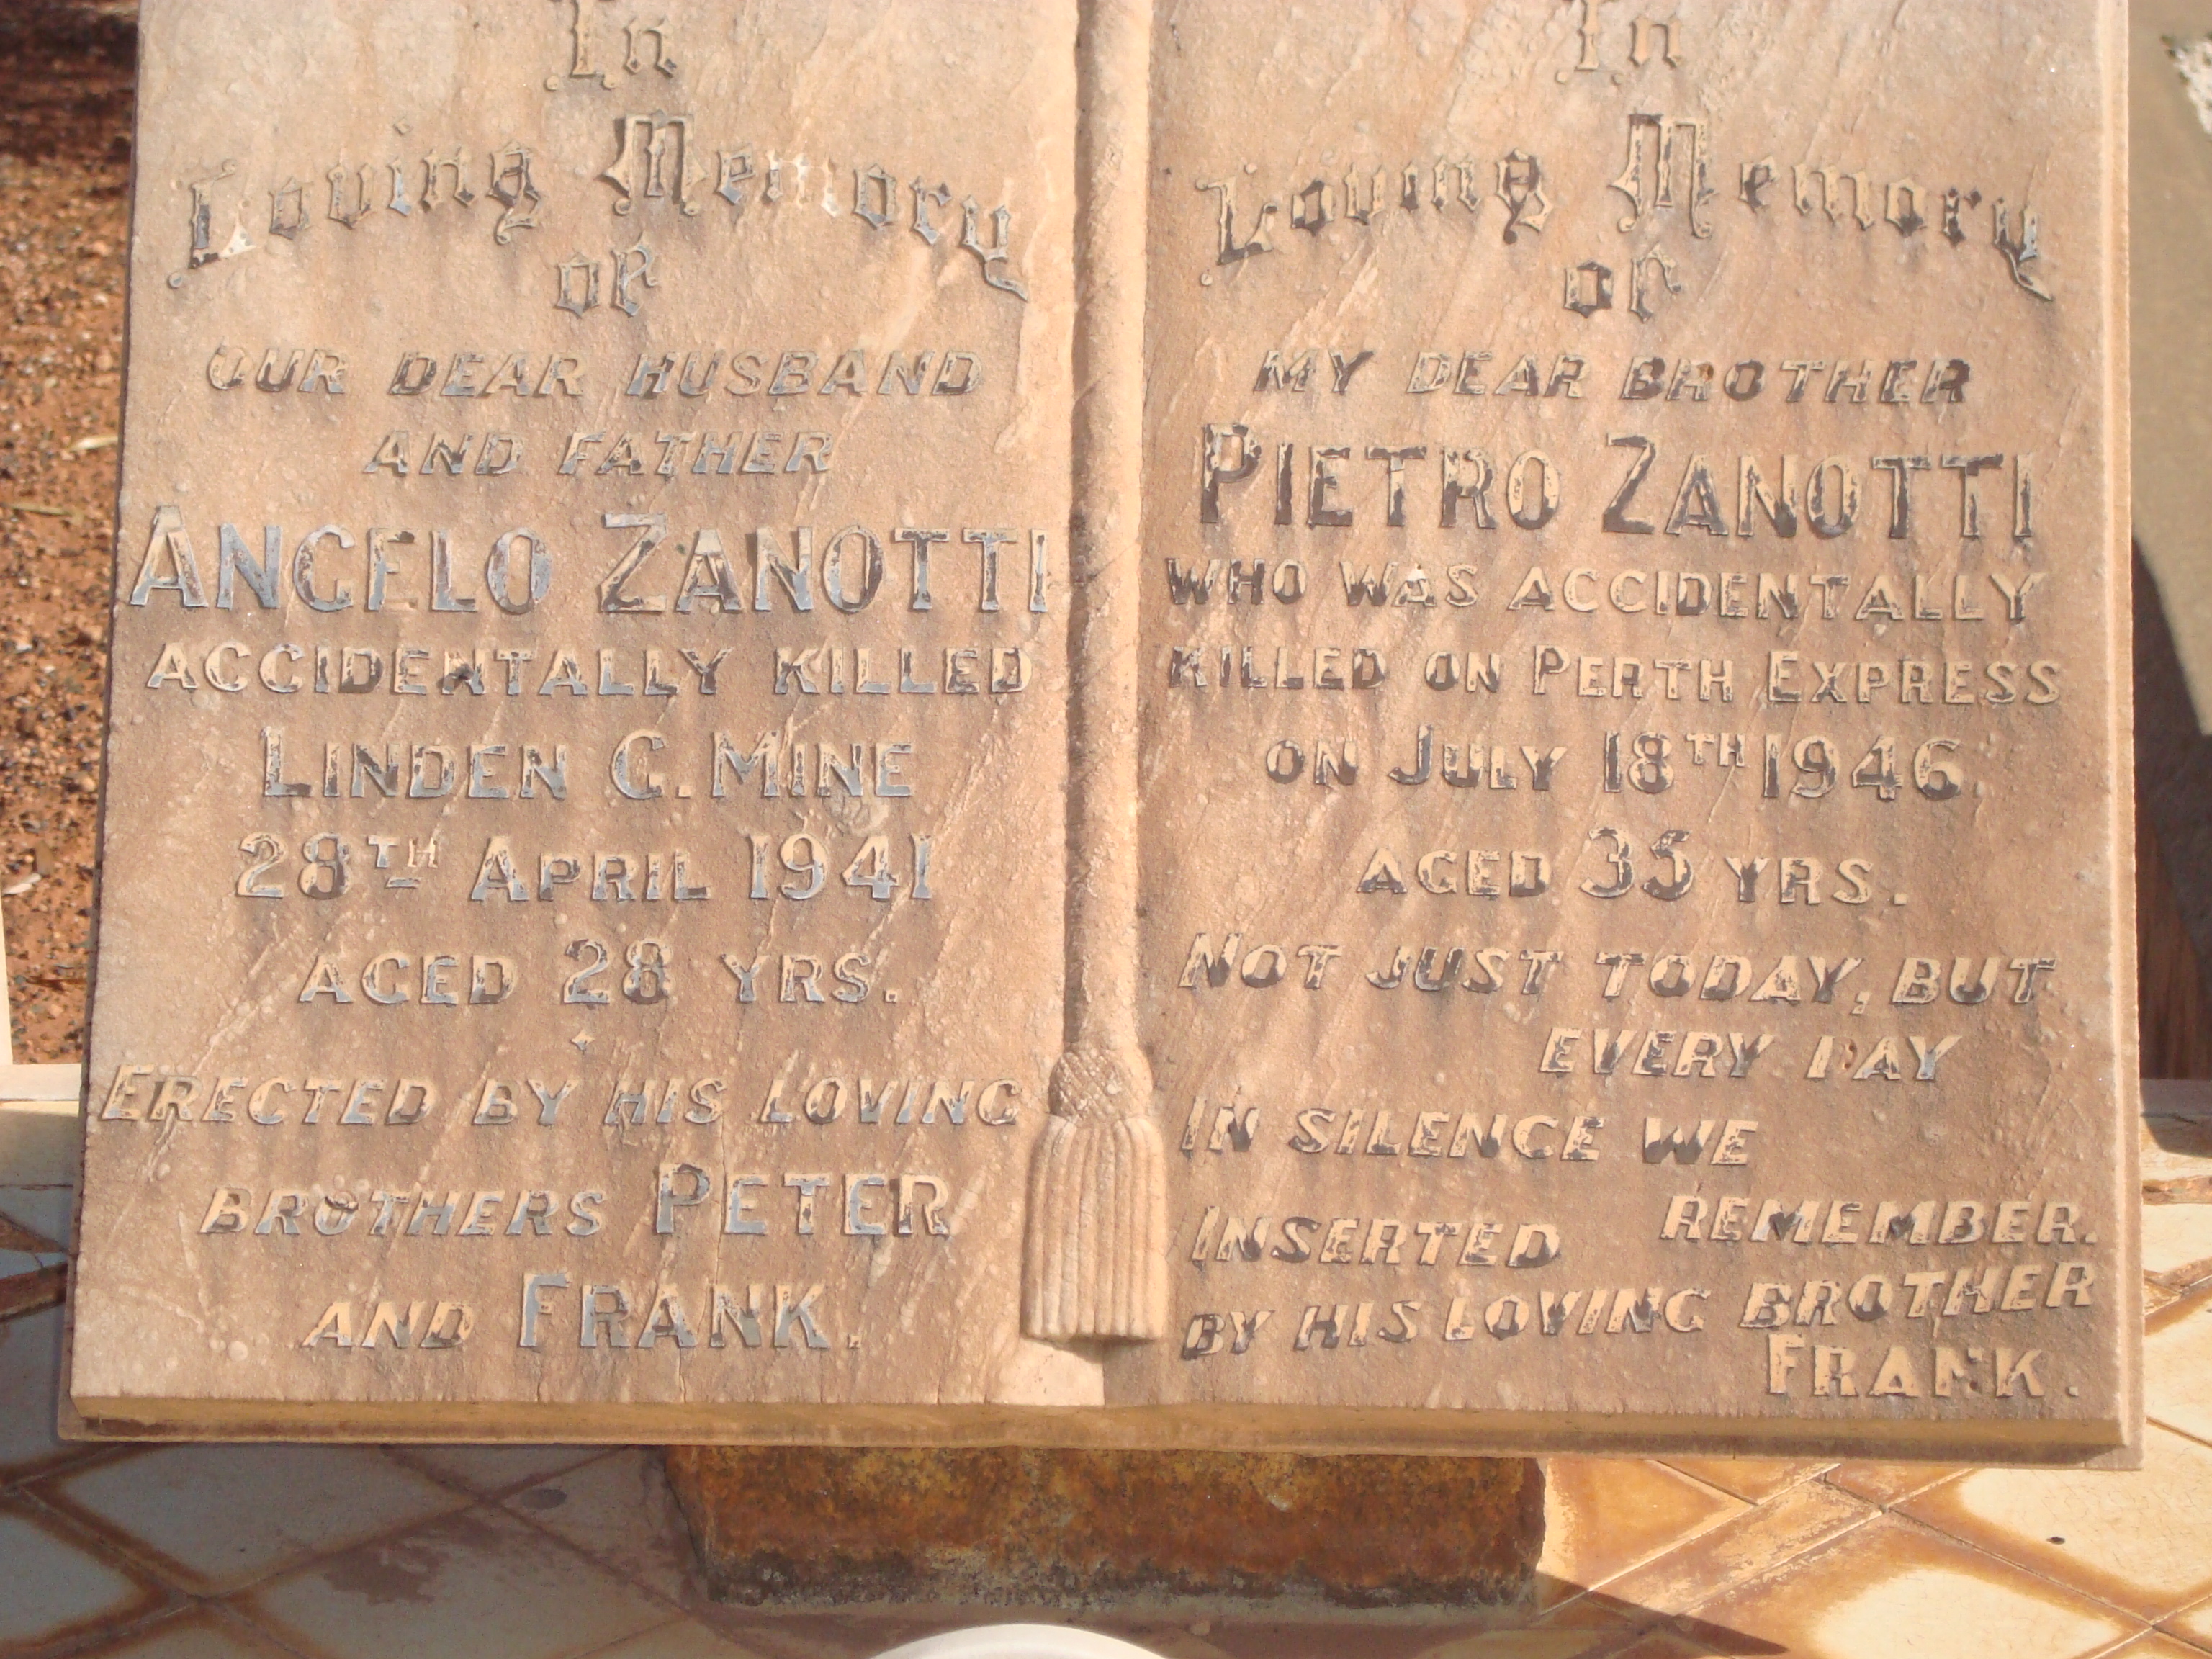 In
Loving Memory
of
OUR DEAR HUSBAND
AND FATHER
ANGELO ZANOTTI
ACCIDENTALLY KILLED
LINDEN G. MINE
28TH APRIL 1941
AGED 28 YRS.
ERECTED BY HIS LOVING
BROTHERS PETER
AND FRANK.
In
Loving Memory
of
MY DEAR BROTHER
PIETRO ZANOTTI
WHO WAS ACCIDENTALLY
KILLED ON PERTH EXPRESS
ON JULY 18TH 1946
AGED 35 YRS.
NOT JUST TODAY, BUT
EVERY DAY
IN SILENCE WE
REMEMBER.
INSERTED
BY HIS LOVING BROTHER
FRANK.